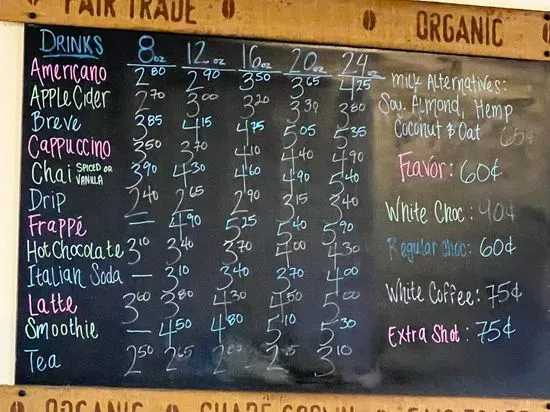 FAIR TRADE ORGANIC
DRINKS 8oz 12oz 16oz 20oz 24oz
Americano 2.80 2.90 3.50 3.65 4.25
Apple Cider 2.70 3.00 3.20 3.30 3.80
Breve 3.85 4.15 4.25 5.05 5.35
Cappuccino 3.50 3.70 4.10 4.40 4.90
Chai SPICED OR VANILLA 3.90 4.30 4.60 4.90 5.40
Drip 2.40 2.65 2.90 3.15 3.40
Frappé — 4.90 5.25 5.40 5.90
Hot Chocolate 3.10 3.40 3.70 4.00 4.30
Italian Soda — 3.10 3.40 3.70 4.00
Latte 3.60 3.80 4.30 4.50 5.00
Smoothie — 4.50 4.80 5.10 5.30
Tea 2.50 2.65 3.10
Milk Alternatives:
Soy, Almond, Hemp
Coconut & Oat 65¢
Flavor: 60¢
White Choc: 90¢
Regular Choc: 60¢
White Coffee: 75¢
Extra Shot: 75¢
ORGANIC SHADE GROWN